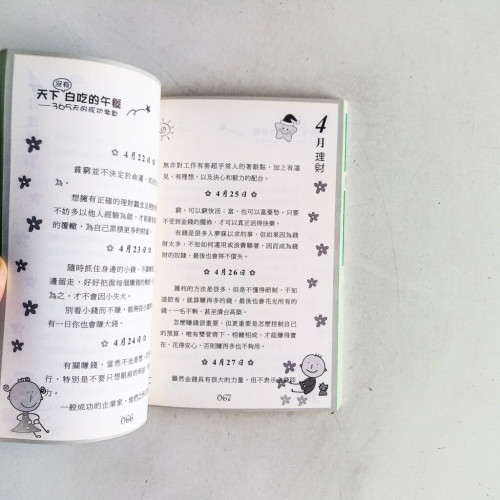 天下沒有白吃的午餐
——365天的成功激勵
4月22日
貧窮並不決定於命運
為。
想擁有正確的理財觀
不妨多以他人經驗為鏡
的覆轍，為自己累積更多的財
4月23日
隨時抓住身邊的小錢
邊溜走，好好把握每個賺錢的
為之，才不會因小失大。
別看小錢而不賺
有一日你也會賺大錢。
4月24日
有關賺錢，當然不光是
行，特別是不要只想眼前的
一般成功的企業家，他們之
066
4月理財
無非對工作有套超乎常人的著眼點，加上有遠
見、有理想，以及決心和毅力的配合。
4月25日
窮，可以窮快活；富，也可以富憂愁。只要
不受到金錢的擺佈，才可以真正活得快樂。
有錢是很多人夢寐以求的事，但如果因為錢
財太多，不知如何運用或浪費糟蹋，因而成為錢
財的奴隸，最後也會得不償失。
4月26日
獲利的方法是很多，但是不懂得節制，不知
道節省，就算賺再多的錢，最後也會花光所有的
錢，一毛不剩，甚至債台高築。
怎麼賺錢很重要，但更重要是怎麼控制自己
的預算，唯有雙管齊下，相輔相成，才能賺得實
在，花得安心，否則賺再多也不夠用。
4月27日
雖然金錢具有很大的力量，但不表示
067